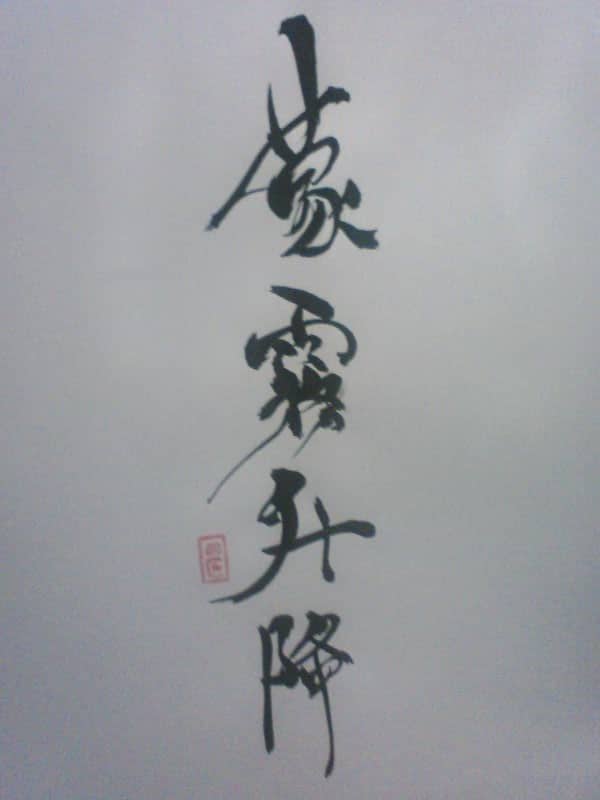 蒙霧升降